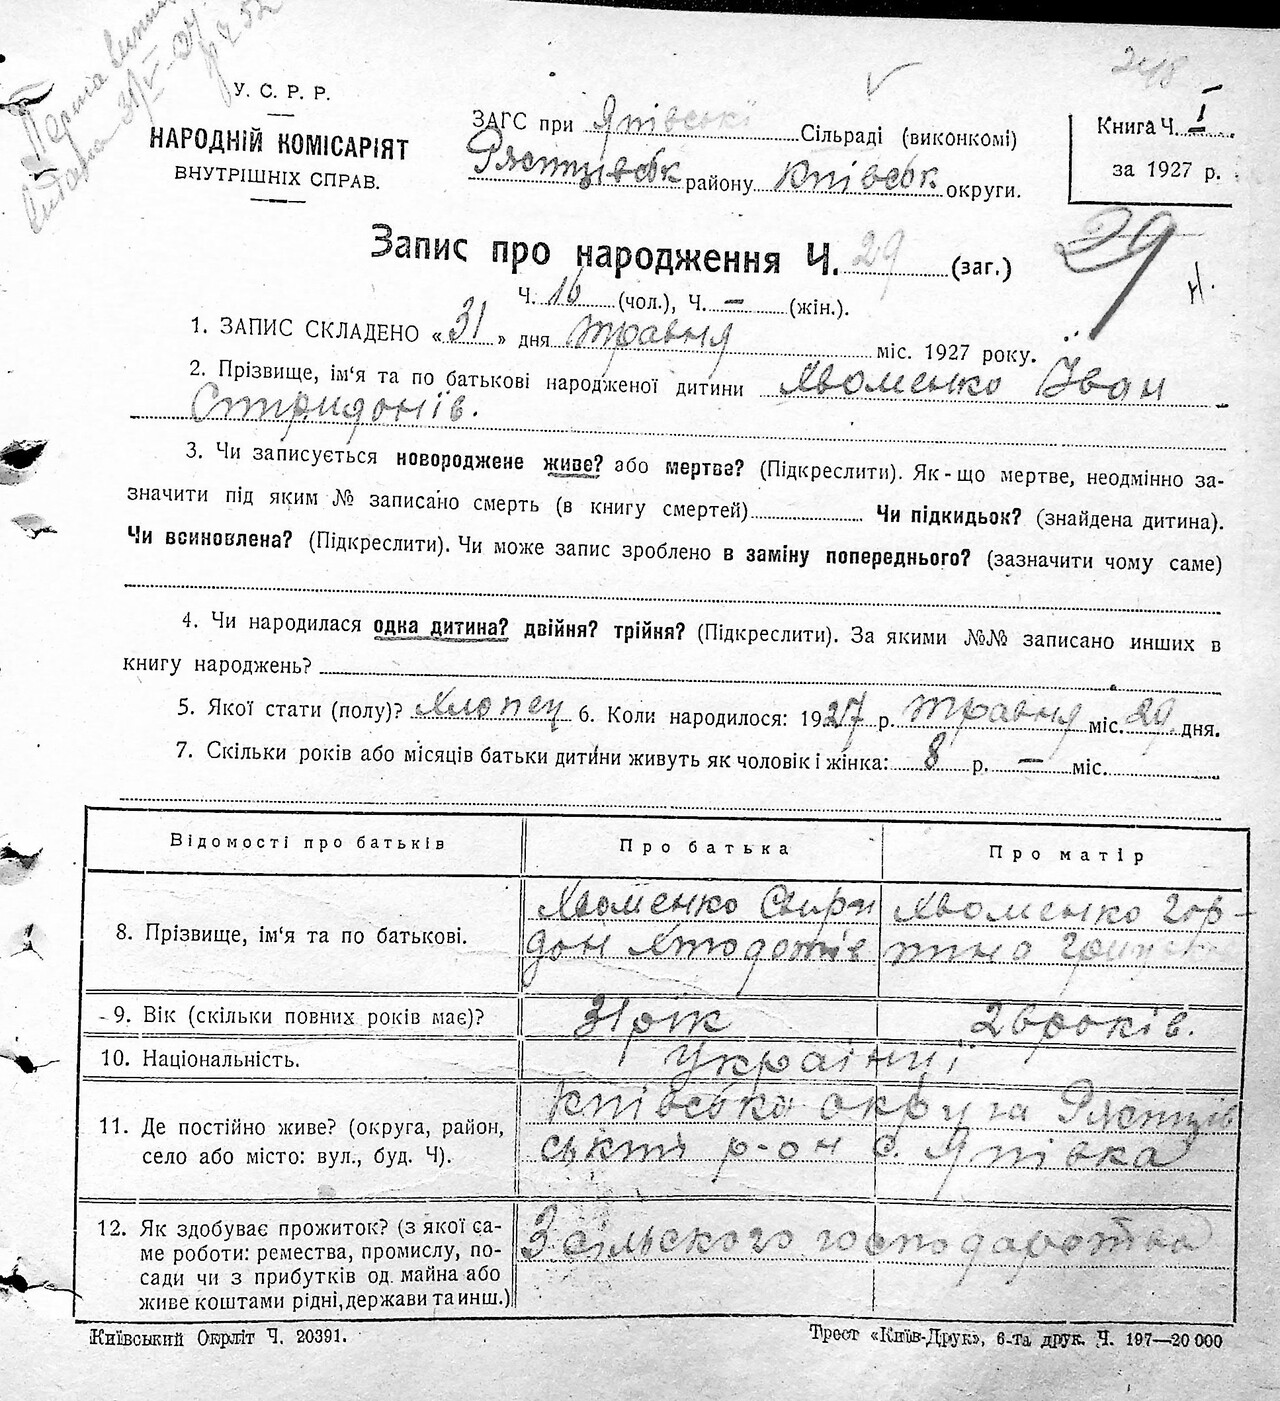 248
У. С. Р. Р.
НАРОДНІЙ КОМІСАРІЯТ
ВНУТРІШНІХ СПРАВ.
ЗАГС при Япівські Сільраді (виконкомі)
району Київськ округи.
Книга Ч. I
за 1927 р.
Запис про народження Ч. 29 (заг.)
29
Ч. 16 (чол.), Ч. — (жін.).
1. ЗАПИС СКЛАДЕНО « 31 » дня травня міс. 1927 року.
2. Прізвище, ім‘я та по батькові народженої дитини Хвоменко Іван
3. Чи записується новороджене живе? або мертве? (Підкреслити). Як-що мертве, неодмінно за-
значити під яким № записано смерть (в книгу смертей) Чи підкидьок? (знайдена дитина).
Чи всиновлена? (Підкреслити). Чи може запис зроблено в заміну попереднього? (зазначити чому саме)
4. Чи народилася одна дитина? двійня? трійня? (Підкреслити). За якими №№ записано инших в
книгу народжень?
5. Якої стати (полу)? Хлопец 6. Коли народилося: 1927 р. травня міс. 29 дня.
7. Скільки років або місяців батьки дитини живуть як чоловік і жінка: 8 р. — міс.
Відомості про батьків
Про батька
Про матір
8. Прізвище, ім‘я та по батькові.
Хвоменко Свири
дон
Хвоменко Гор-
пина
9. Вік (скільки повних років має)?
31 рік
26 років.
10. Національність.
Українці
11. Де постійно живе? (округа, район,
село або місто: вул., буд. Ч).
Київська округа
р-он с. Япівка
12. Як здобуває прожиток? (з якої са-
ме роботи: ремества, промислу, по-
сади чи з прибутків од майна або
живе коштами рідні, держави та инш.)
З сільского господарства
Київський Окрліт Ч. 20391.
Трест «Київ-Друк», 6-та друк. Ч. 197—20 000